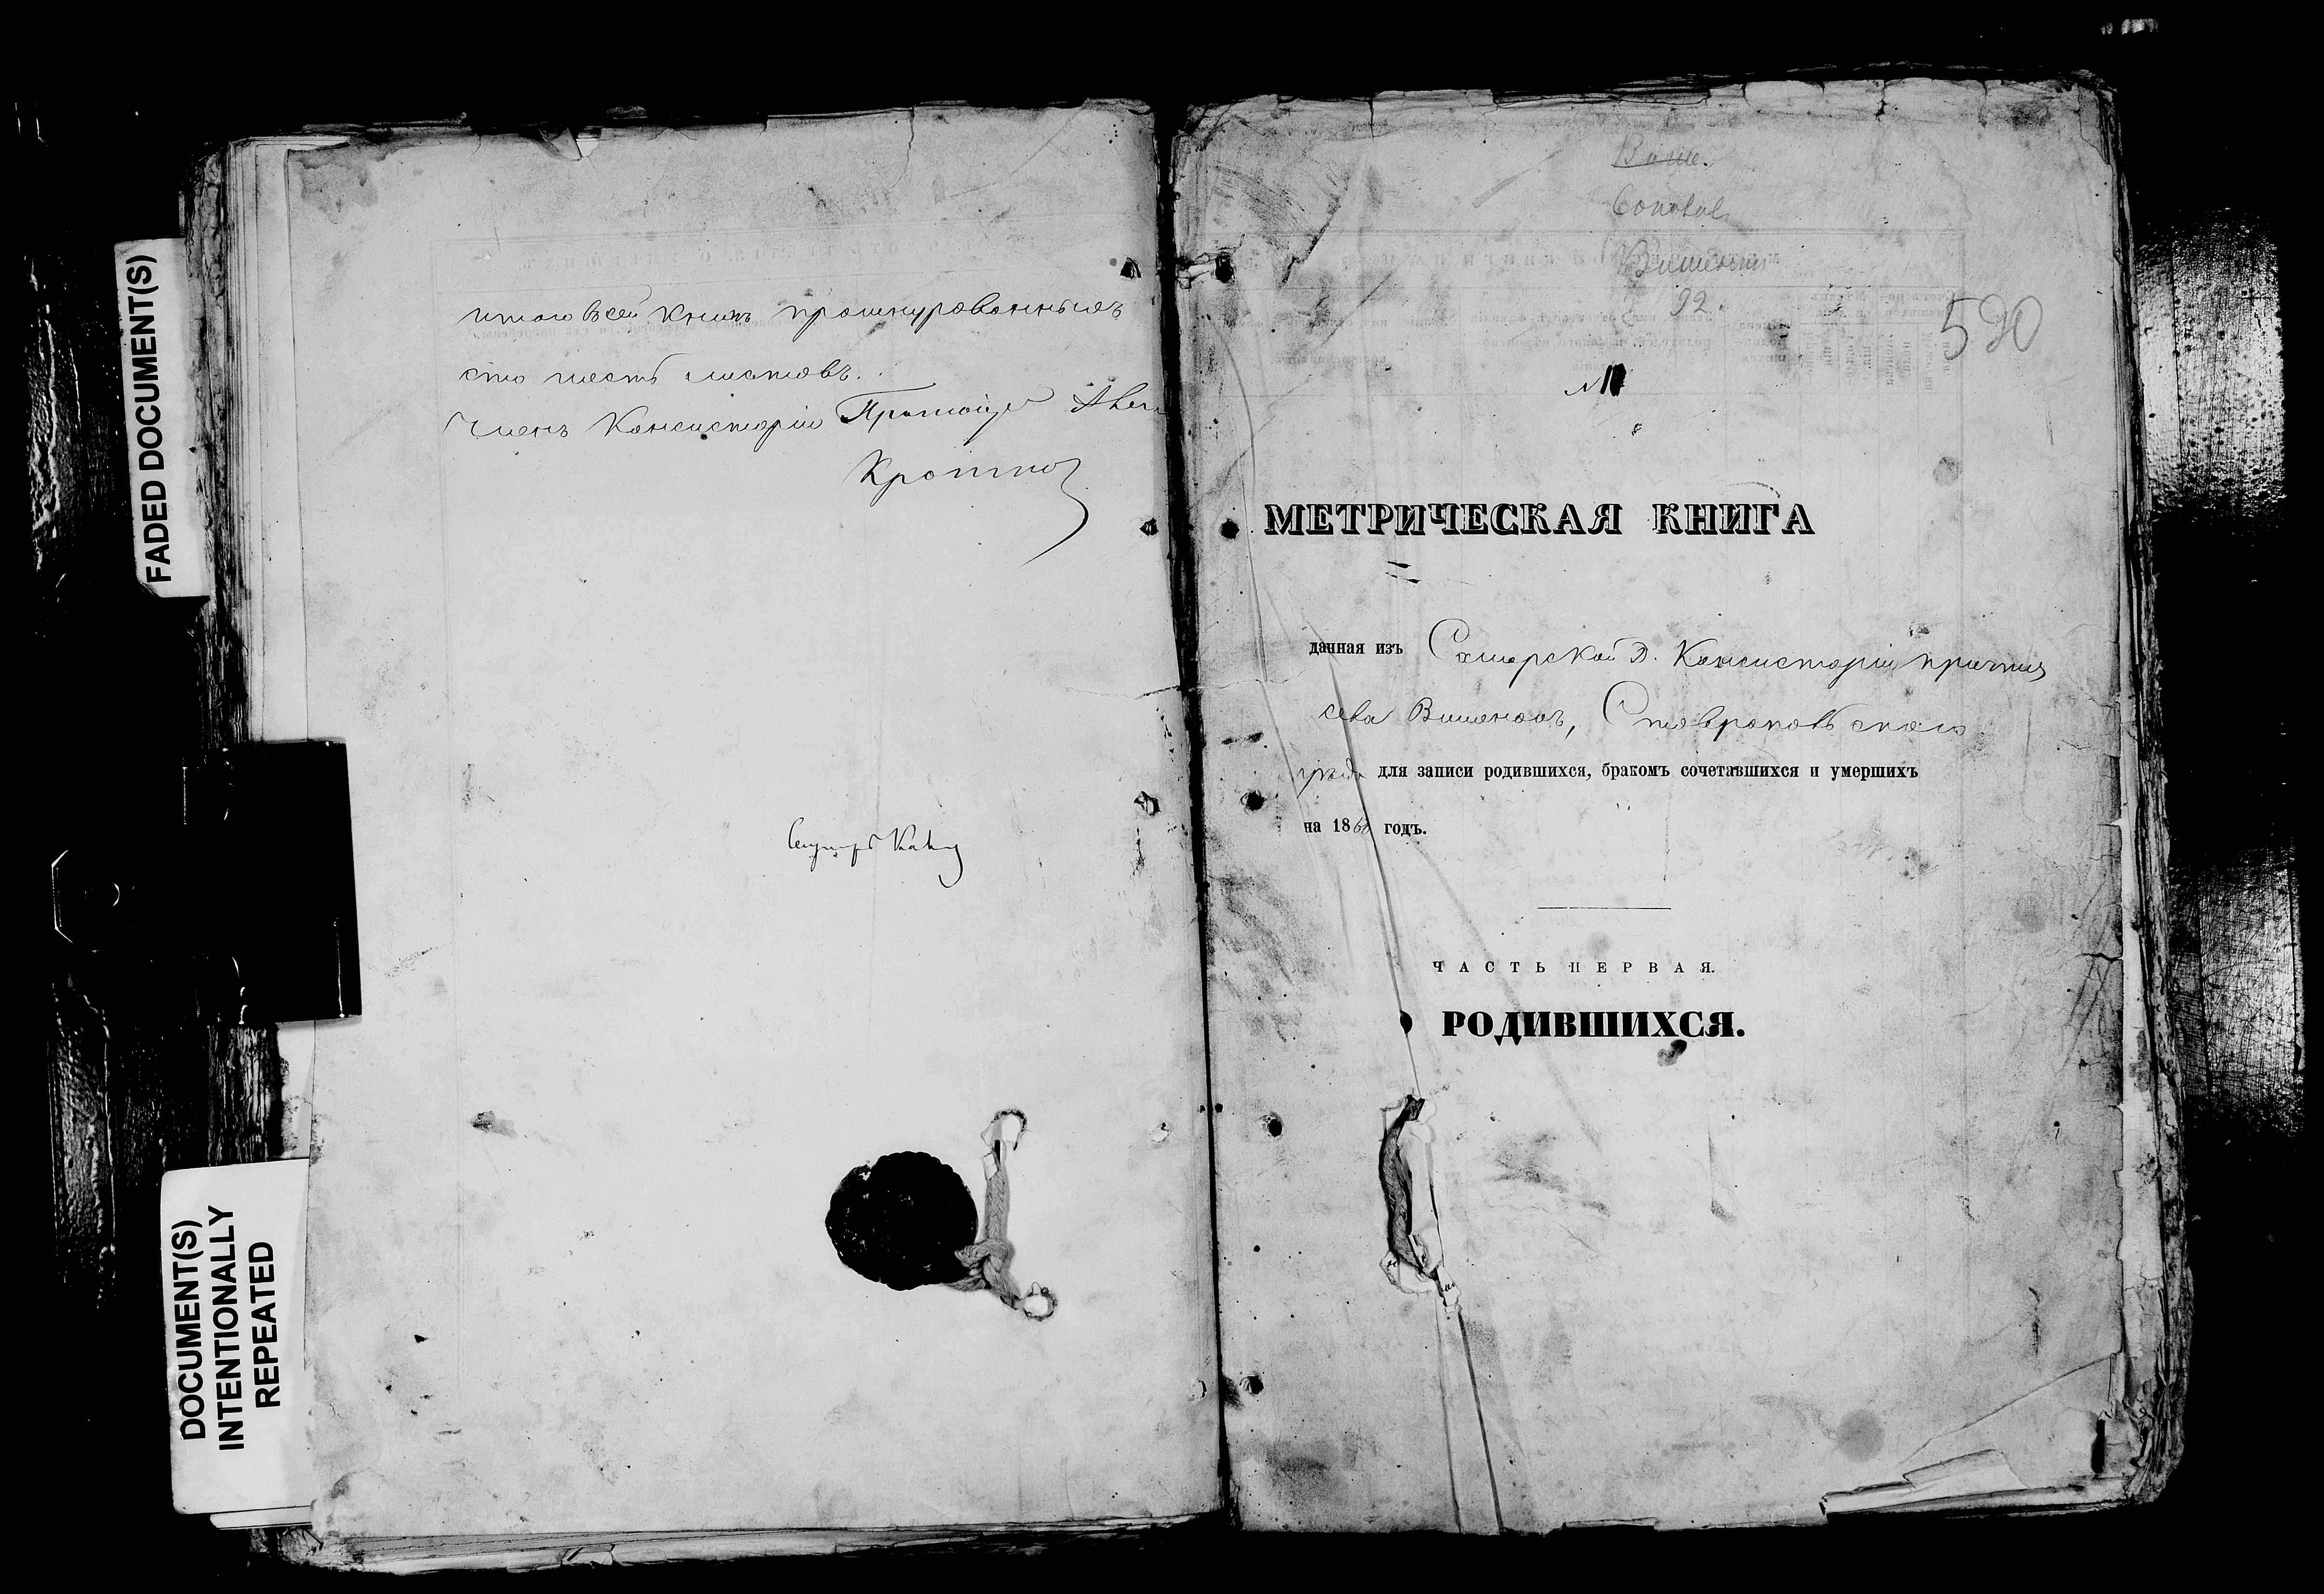 FADED DOCUMENT(S)
DOCUMENT(S)
INTENTIONALLY
REPEATED
итого въ сей книгѣ прошнурованныхъ
сто шесть листовъ.
Членъ Консисторіи Протоіерей
Кротков
92.
590
№
МЕТРИЧЕСКАЯ КНИГА
данная изъ Самарской Д. Консисторіи причту
села Вишенокъ, Ставропольскаго
уѣзда для записи родившихся, бракомъ сочетавшихся и умершихъ
на 18 годъ.
ЧАСТЬ ПЕРВАЯ.
РОДИВШИХСЯ.